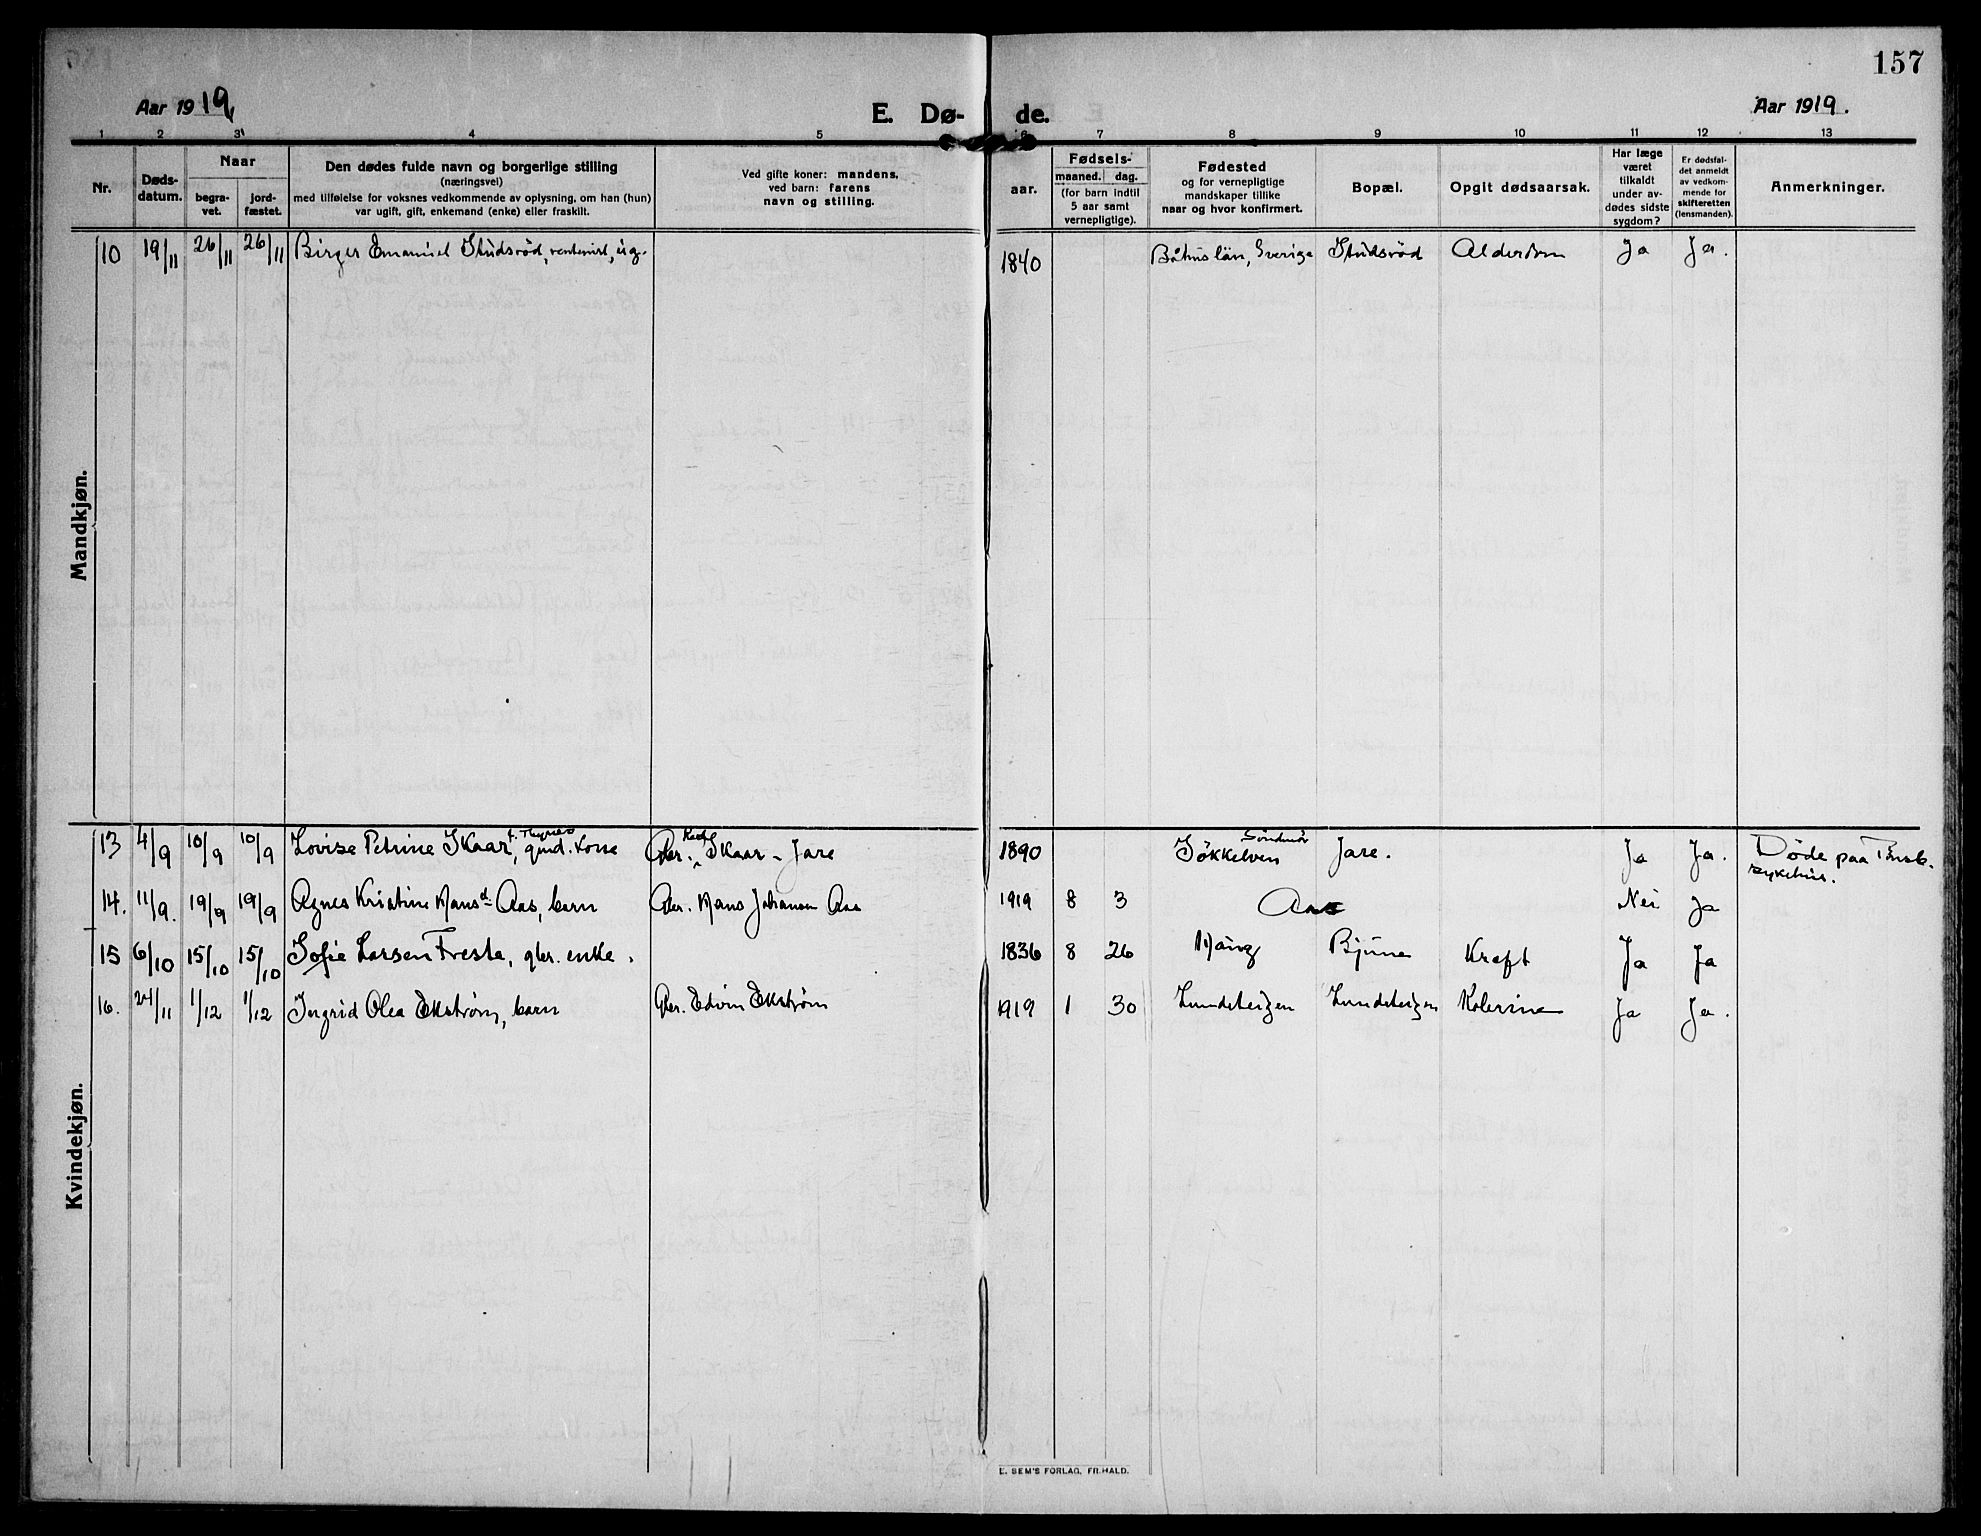 157
Aar 1919
E. Dø-
de.
Aar 1919.
1 2 3 4 5 6 7 8 9 10 11 12 13
Nr.
Døds-
datum.
Naar
begra-
vet.
jord-
fæstet.
Den dødes fulde navn og borgerlige stilling
(næringsvei)
med tilføielse for voksnes vedkommende av oplysning, om han (hun)
var ugift, gift, enkemand (enke) eller fraskilt.
Ved gifte koner: mandens,
ved barn: farens
navn og stilling.
aar.
Fødsels-
maaned. dag.
(for barn indtil
5 aar samt
vernepligtige).
Fødested
og for vernepligtige
mandskaper tillike
naar og hvor konfirmert.
Bopæl.
Opgit dødsaarsak.
Har læge
været
tilkaldt
under av-
dødes sidste
sygdom?
Er dødsfal-
det anmeldt
av vedkom-
mende for
skifteretten
(lensmanden).
Anmerkninger.
Mandkjøn.
10 19/11 26/11 26/11 Birger Emanuel Studsrød, rentenist, ug. 1840 Båhuslän, Sverige Studsrød Alderdom Ja Ja.
Kvindekjøn.
13 4/9 10/9 10/9 Lovise Petrine Skaar, f. Thynes gmd. kone Gbr. Skaar - Jare 1890 Søkkelven Søndmør Jare. Ja Ja. Døde paa
sykehus.
14. 11/9. 19/9 19/9 Agnes Kristine Hansd. Aas, barn Gbr. Hans Johansen Aas 1919 8 3 Aas Nei Ja
15 6/10 15/10 15/10 Sofie Larsen Freste, gbr. enke. 1836 8 26 Vång Bjune Kræft Ja Ja
16. 24/11 1/12 1/12 Ingrid Olea Ekstrøm, barn Gbr. Edvin Ekstrøm 1919 1 30 Lundeteigen Lundeteigen Kolerine Ja Ja.
E. SEM'S FORLAG, FR.HALD.